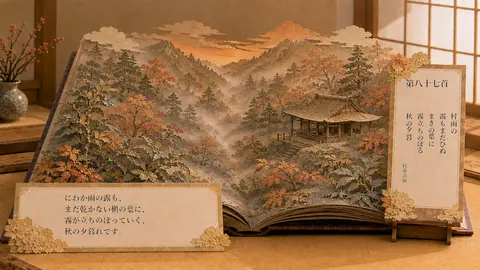 第八十七首
村雨の
露もまだひぬ
まきの葉に
霧立ちのぼる
秋の夕暮
にわか雨の露も、
まだ乾かない槙の葉に、
霧が立ちのぼっていく、
秋の夕暮れです。